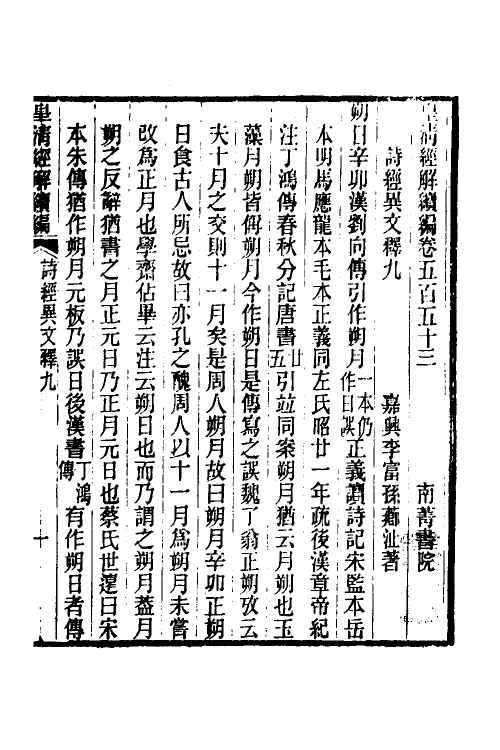 皇清經解續編卷五百五十三　南菁書院
詩經異文釋九　嘉興李富孫薌沚著
朔日辛卯漢劉向傳引作朔月一本仍作日誤正義讀詩記宋監本岳
本明馬應龍本毛本正義同左氏昭廿一年疏後漢章帝紀
注丁鴻傳春秋分記唐書廿五引竝同案朔月猶云月朔也玉
藻月朔皆偁朔月今作朔日是傳寫之誤魏了翁正朔攷云
夫十月之交則十一月矣是周人朔月故曰朔月辛卯正朔
日食古人所忌故曰亦孔之醜周人以十一月爲朔月未嘗
改爲正月也學齋佔畢云注云朔日也而乃謂之朔月葢月
朔之反辭猶書之月正元日乃正月元日也蔡氏世遠曰宋
本朱傳猶作朔月元板乃誤日後漢書丁鴻傳有作朔日者傳
皇清經解續編
詩經異文釋九
十